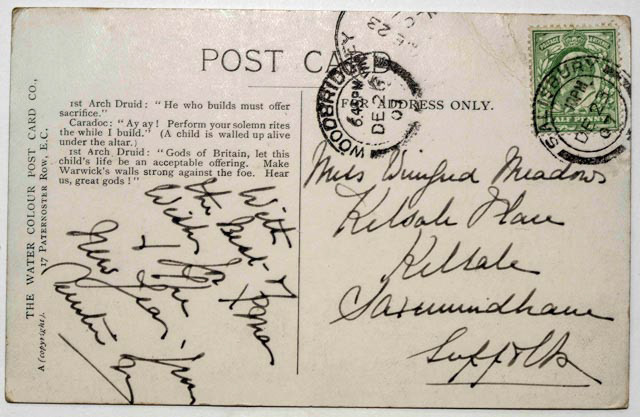 POST CARD
FOR ADDRESS ONLY.
THE WATER COLOUR POST CARD CO.,
17 PATERNOSTER ROW, E.C.
A (copyright).
1st Arch Druid: "He who builds must offer
sacrifice."
Caradoc: "Ay ay! Perform your solemn rites
the while I build." (A child is walled up alive
under the altar.)
1st Arch Druid: "Gods of Britain, let this
child's life be an acceptable offering. Make
Warwick's walls strong against the foe. Hear
us, great gods!"
With
the Best of
Wishes for Xmas
& the
New Year. from
WOODBRIDGE
6.45PM
DE 26
SALISBURY
DE 25
HALF PENNY
Miss Winifred Meadows
Kelsale Place
Kelsale
Saxmundham
Suffolk